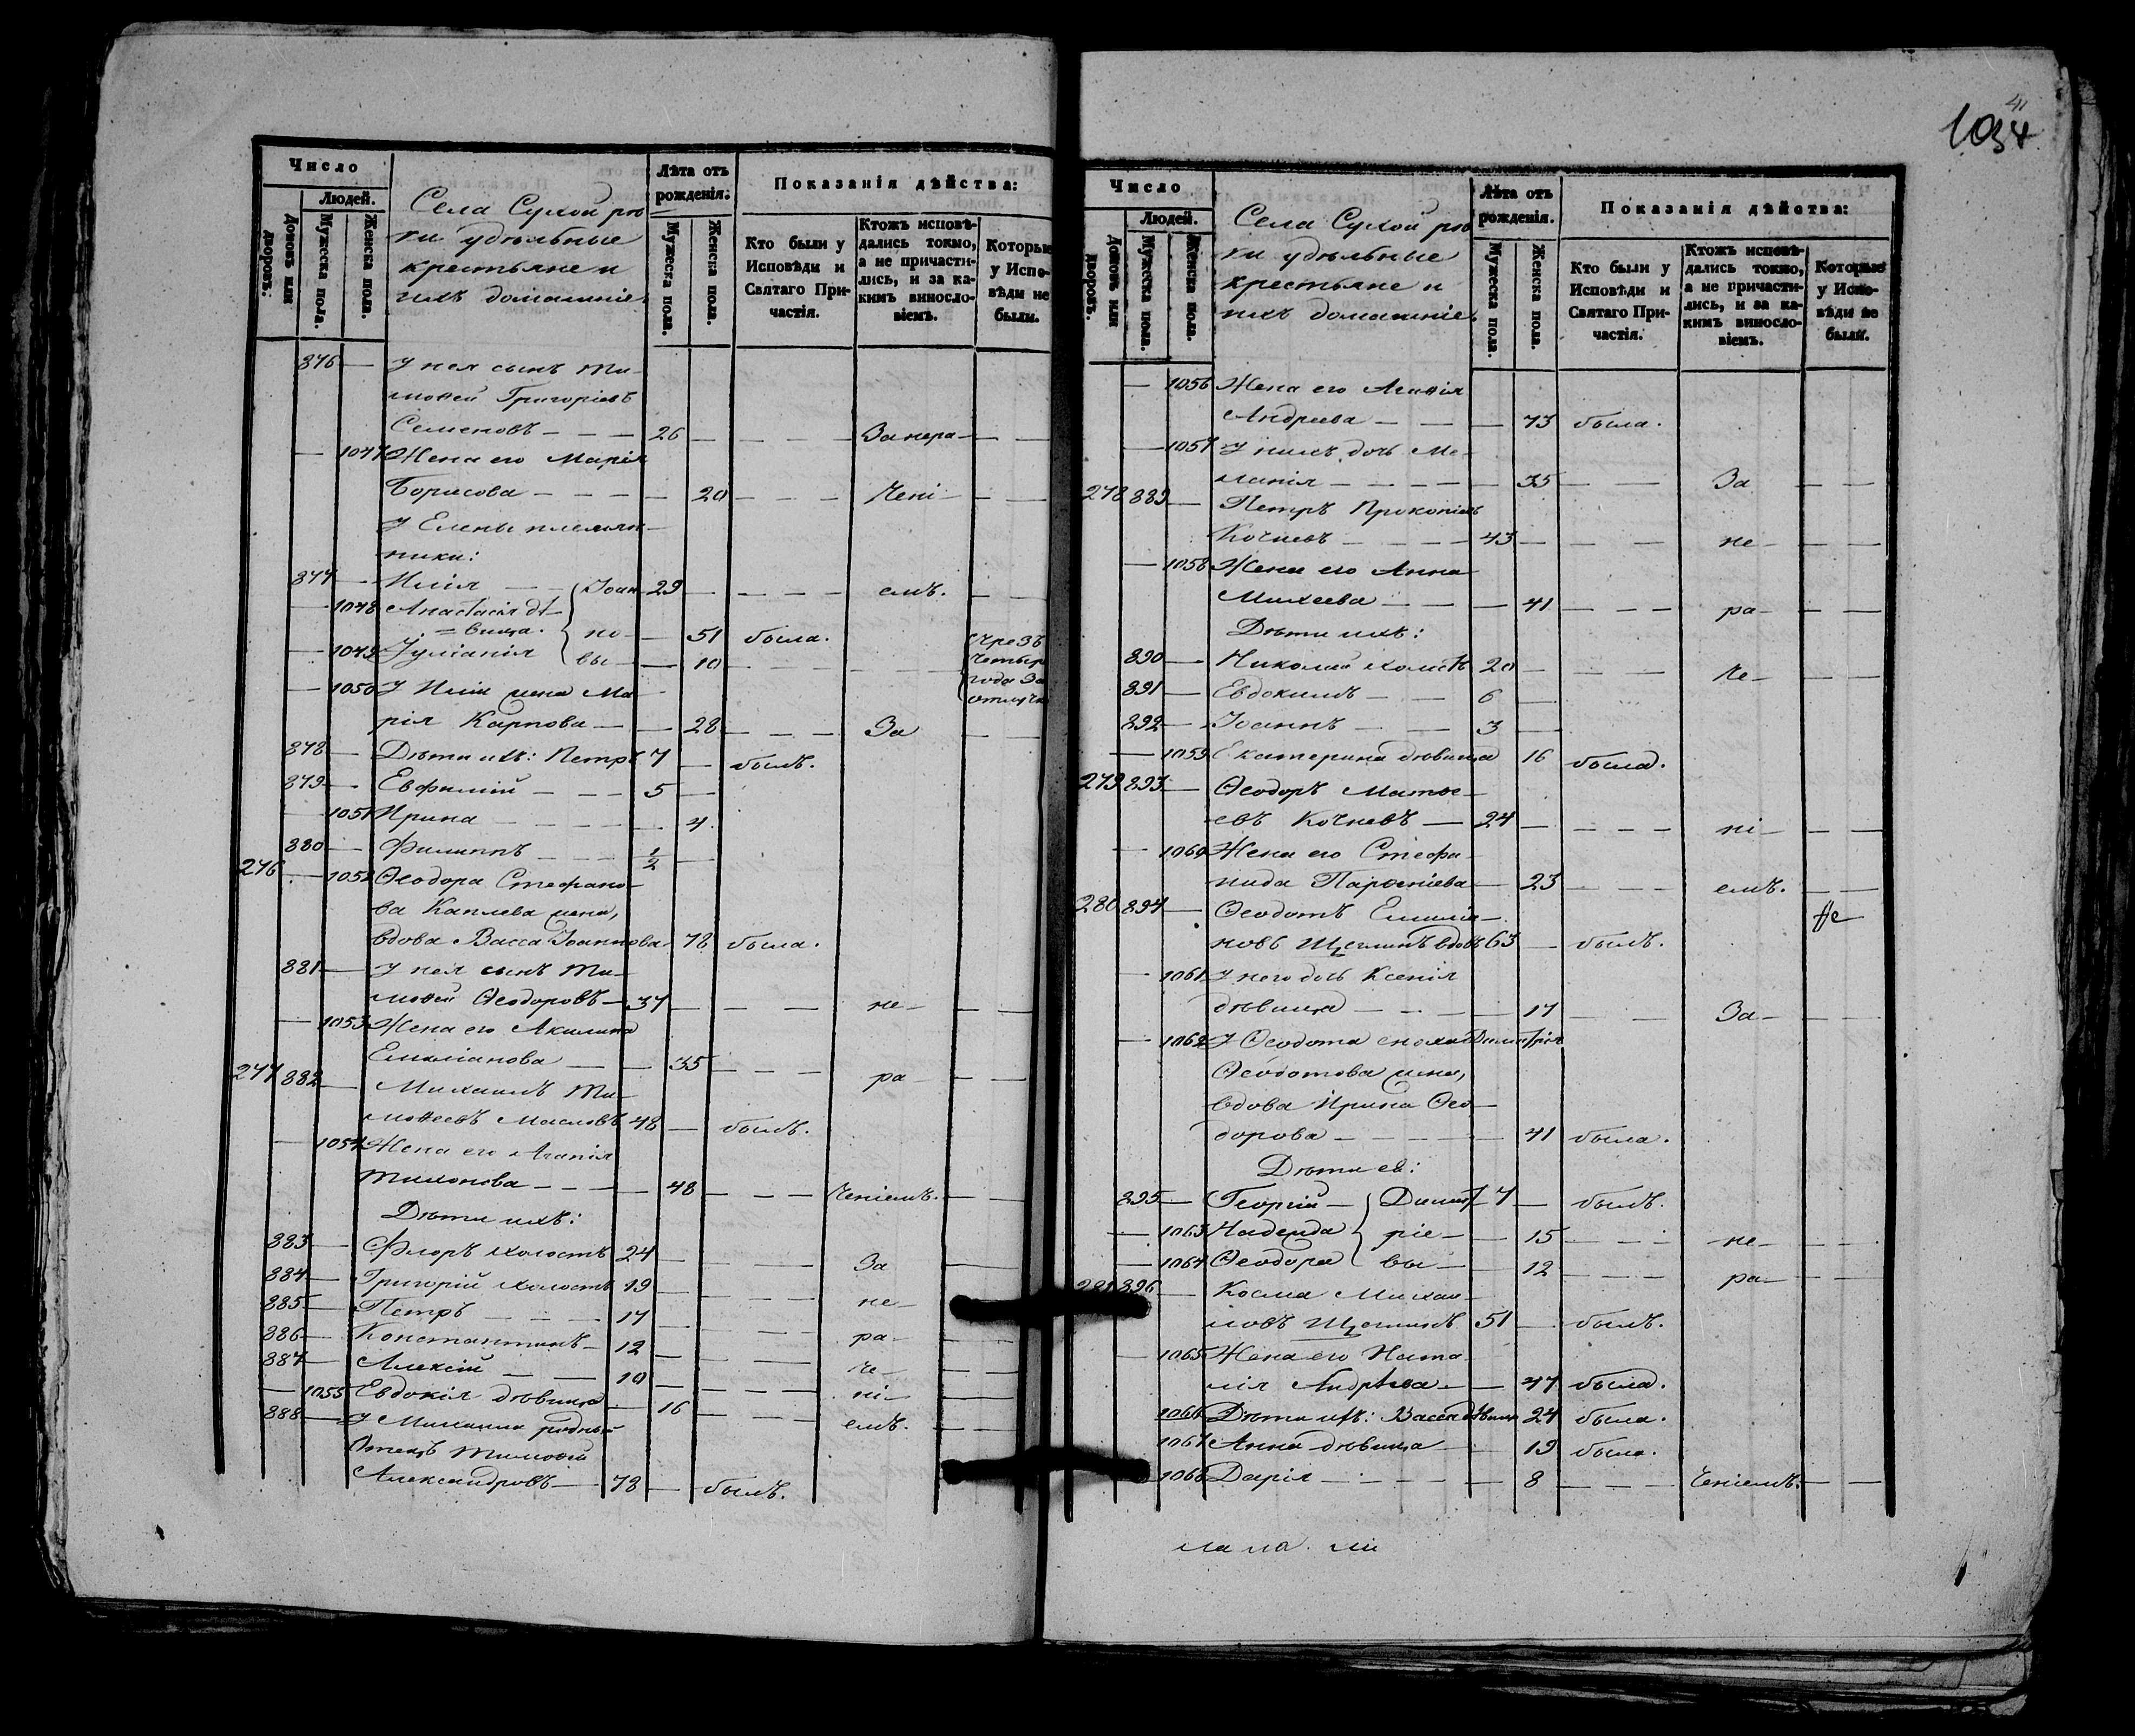 Число
Людей.
Домовъ или дворовъ.
Мужеска пола.
Женска пола.
Села Сухой рѣч
ки удѣльные
крестьяне и
ихъ домашніе
Лѣта отъ рожденія.
Мужеска пола.
Женска пола.
Показанія дѣйства:
Кто были у Исповѣди и Святаго При-частія.
Ктожъ исповѣ-дались токмо, а не причасти-лись, и за ка-кимъ винословіемъ.
Которые у Испо-вѣди не были.
876 — У нея сынъ Ти-
моѳей Григоріевъ
Семеновъ — — — 26 — — — — За нера — — —
— 1047 Жена его Марія
Борисова — — — — 20 — — — чені — — —
У Елены племян-
ники:
877 — Илія — Іоан- 29 — — — — емъ. — —
— 1048 Анастасія дѣ-
вица. но- — 51 была.
— 1049 Іуліанія вы — — 10 — — — — чрезъ
четыр
года за
отлуч
— 1050 У Иліи жена Ма-
рія Карпова — — 28 — — — За — —
878 — Дѣти ихъ: Петръ 7 — былъ.
879 — Евфимій — — — 5 —
— 1051 Ирина — — — — — 4.
880 — Филиппъ — — — 1/2 —
276 — 1052 Ѳеодора Стефано-
ва Каплева жена,
вдова Васса Іоаннова — 78 была.
881 — У нея сынъ Ти-
моѳей Ѳеодоровъ — 37 — — — — не — — —
— 1053 Жена его Акилина
Емиліанова — — 35 — — — ра — — —
277 882 — Михаилъ Ти-
моѳеевъ Масловъ 48 — былъ.
— 1054 Жена его Агапія
Тихонова — — — — 48 — — — ченіемъ. — —
Дѣти ихъ:
883 — Флоръ холостъ 24 — — — — За —
884 — Григорій холостъ 19 — — — — не —
885 — Петръ — — — 17 — — — — ра —
886 — Константинъ — 12 — — — — че — — —
887 — Алексій — — 10 — — — — ні — —
— 1055 Евдокія дѣвица — 16 — — — емъ. — —
888 — У Михаила родный
отецъ Тимоѳей
Александровъ — 78 — былъ.
41
1034
Число
Людей.
Домовъ или дворовъ.
Мужеска пола.
Женска пола.
Села Сухой рѣч
ки удѣльные
крестьяне и
ихъ домашніе
Лѣта отъ рожденія.
Мужеска пола.
Женска пола.
Показанія дѣйства:
Кто были у Исповѣди и Святаго При-частія.
Ктожъ исповѣ-дались токмо, а не причасти-лись, и за ка-кимъ винословіемъ.
Которые у Испо-вѣди не были.
— 1056 Жена его Агапія
Андреева — — — 73 была.
— 1057 У нихъ дочь Ме-
ланія — — — — — 35 — — За — —
278 889 — Петръ Прокопіевъ
Кочневъ — — — — 43 — — — не — — —
— 1058 Жена его Анна
Михеева — — — 41 — — — ра — — —
Дѣти ихъ:
890 — Николай холостъ 20 — — — че — — —
891 — Евдокимъ — — 6 —
892 — Іоаннъ — — 3 —
— 1059 Екатерина дѣвица 16 была.
279 893 — Ѳеодоръ Матѳе-
евъ Кочневъ — 24 — — — — ні — — —
— 1060 Жена его Стефа-
нида Парѳеніева — 23 — — — емъ. — —
280 894 — Ѳеодотъ Емилія-
новъ Щегlинъ вдовъ 63 — былъ.
— 1061 У него дочь Ксенія
дѣвица — — — — 17 — — За — — —
— 1062 У Ѳеодота сноха Димитрія
Ѳеодотова жена,
вдова Ирина Ѳео-
дорова — — — — — 41 была.
Дѣти ея:
895 — Георгій — Димит 7 — былъ.
— 1063 Надежда ріе — — 15 — — — не — — —
— 1064 Ѳеодора вы — — 12 — — — ра — — —
281 896 — Косма Михаи-
ловъ 51 — былъ.
— 1065 Жена его Ната-
лія Андрѣева — — 47 была.
1066 Дѣти ихъ: Васса дѣвица 24 была.
1067 Анна дѣвица — 19 была.
1068 Дарія — — — — — 8 — — — ченіемъ. — —